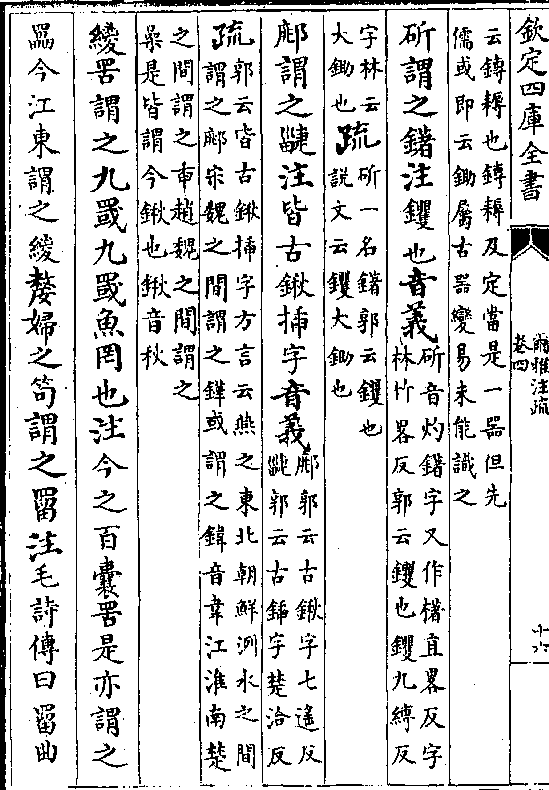 欽定四庫全書
爾雅注疏
卷四
十六
云鎛耨也鎛耨及定當是一器但先
儒或即云鋤屬古器變易未能識之
斫謂之鐯注钁也音義
斫音灼鐯字又作櫡直畧反字
林竹畧反郭云钁也钁九縛反
字林云斫一名鐯郭云钁也
大鋤也疏說文云钁大鋤也
㡍謂之疀注皆古鍬插字音義
㡍郭云古鍬字七遥反
疀郭云古鍤字楚洽反
疏郭云皆古鍬插字方言云燕之東北朝鮮洌水之間
謂之㡍宋魏之間謂之鏵或謂之鍏音韋江淮南楚
之間謂之臿趙魏之間謂之
喿是皆謂今鍬也鍬音秋
緵罟謂之九罭九罭魚罔也注今之百囊罟是亦謂之
䍡今江東謂之緵嫠婦之笱謂之罶注毛詩傳曰罶曲